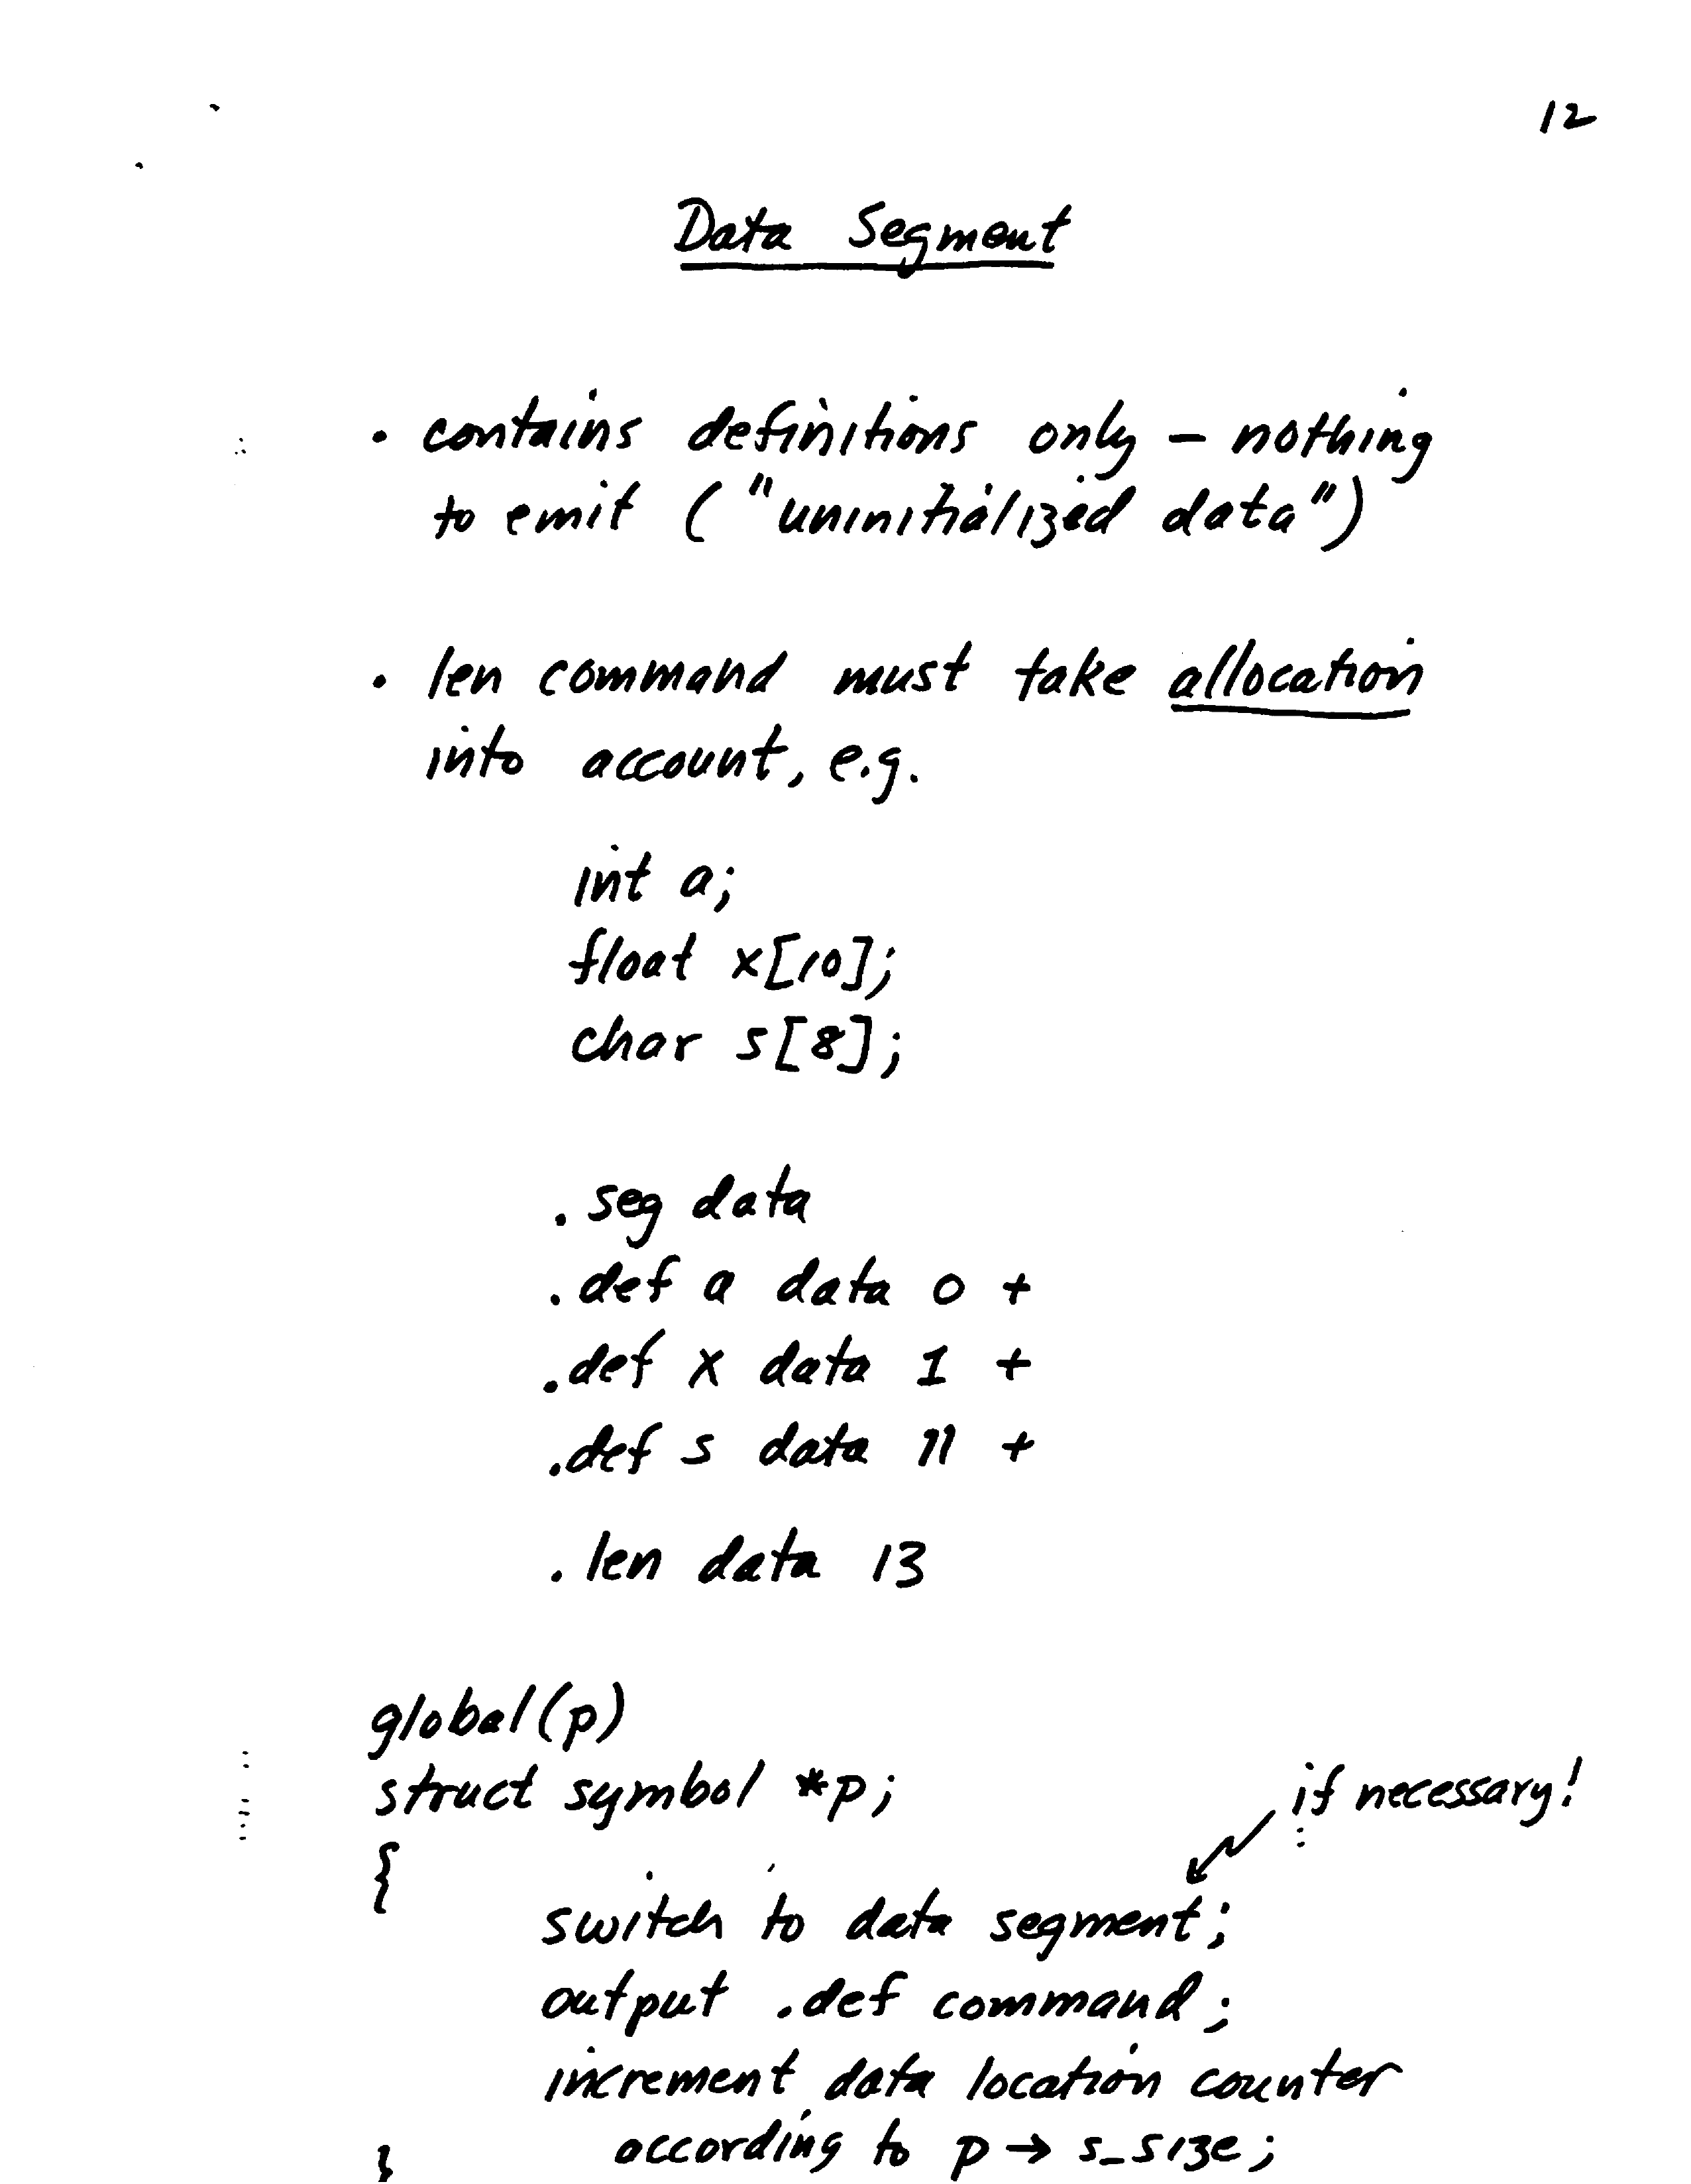 12
Data Segment
• contains definitions only – nothing
to emit ("uninitialized data")
• len command must take allocation
into account, e.g.
int a;
float x[10];
char s[8];
.seg data
.def a data 0 +
.def x data 1 +
.def s data 11 +
.len data 13
global(p)
struct symbol *p;
if necessary!
{
switch to data segment;
output .def command;
increment data location counter
according to p → s_size;
}